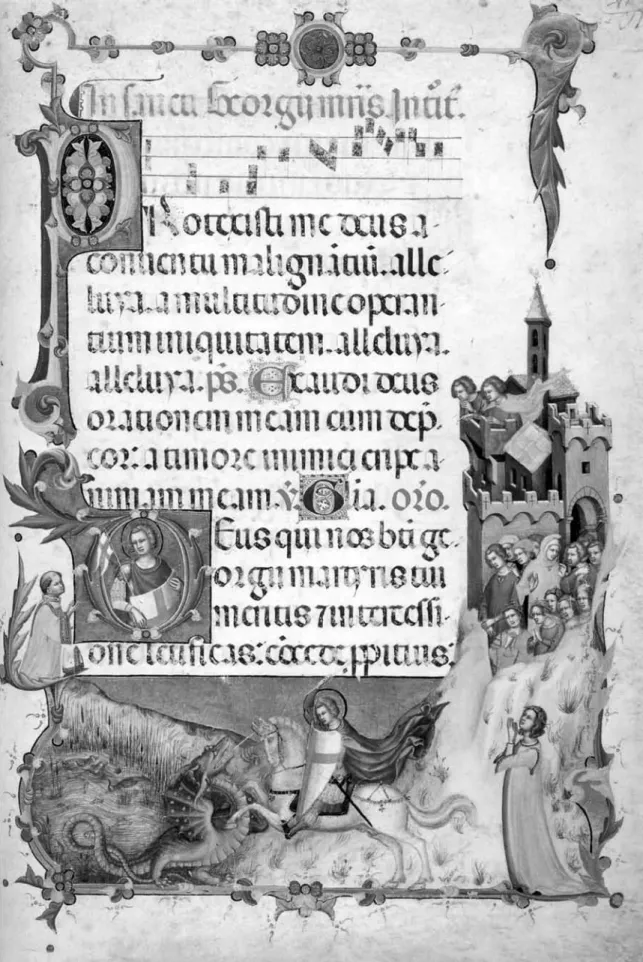 In sancti Georgii mris. Introit.
Rotexisti me deus a
conuentu malignātiū. alle
luya. a multitudine operan
tium iniquitatem. alleluya.
alleluya. p̄s. Exaudi deus
orationem meam cum dep̄
cor: a timore inimici eripe a
nimam meam. v̄ Gīa. oro.
Eus qui nos bt̄i ge
orgii martyris tui
meritis ⁊ intercessi
one letificas: cōcede ꝓpitius: